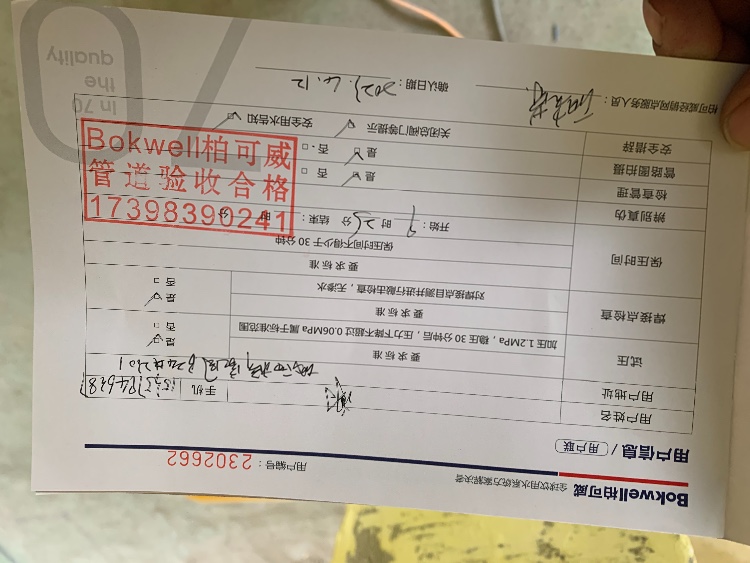 Bokwell柏可威 全球饮用水系统方案解决者
用户编号：2302662
用户信息 / 用户联
用户姓名
手机
用户地址
试压
要求标准
加压1.2MPa，稳压30分钟后，压力下降不超过0.06MPa属于标准范围
是
否
焊接点检查
要求标准
对焊接点目测并进行敲击检查，无渗水
是
否
保压时间
要求标准
保压时间不得少于30分钟
开始： 时 分 结束： 时 分
辨别真伪
检查管理
是
否
管路图拍摄
是
否
安全措辞
关闭总阀门等提示
安全用水告知
柏可威经销网点服务人员：
确认日期：2023.4.12
Bokwell柏可威
管道验收合格
17398390241
In 70
the
quality